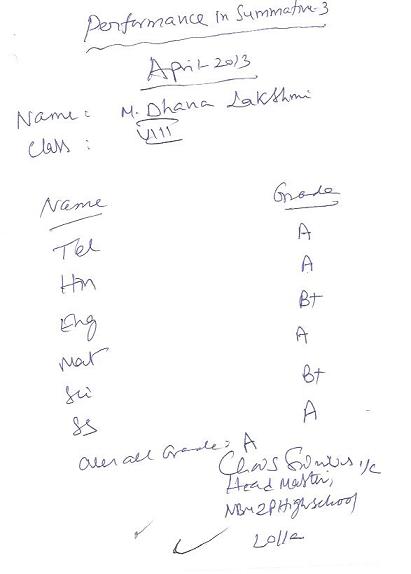 Performance in Summative-3
April-2013
Name: M. Dhana Lakshmi
Class: VIII
Name Grade
Tel A
Hn A
Eng B+
Mat A
Sci B+
SS A
Overall Grade: A
I/c
Head Master,
High School
Lolla